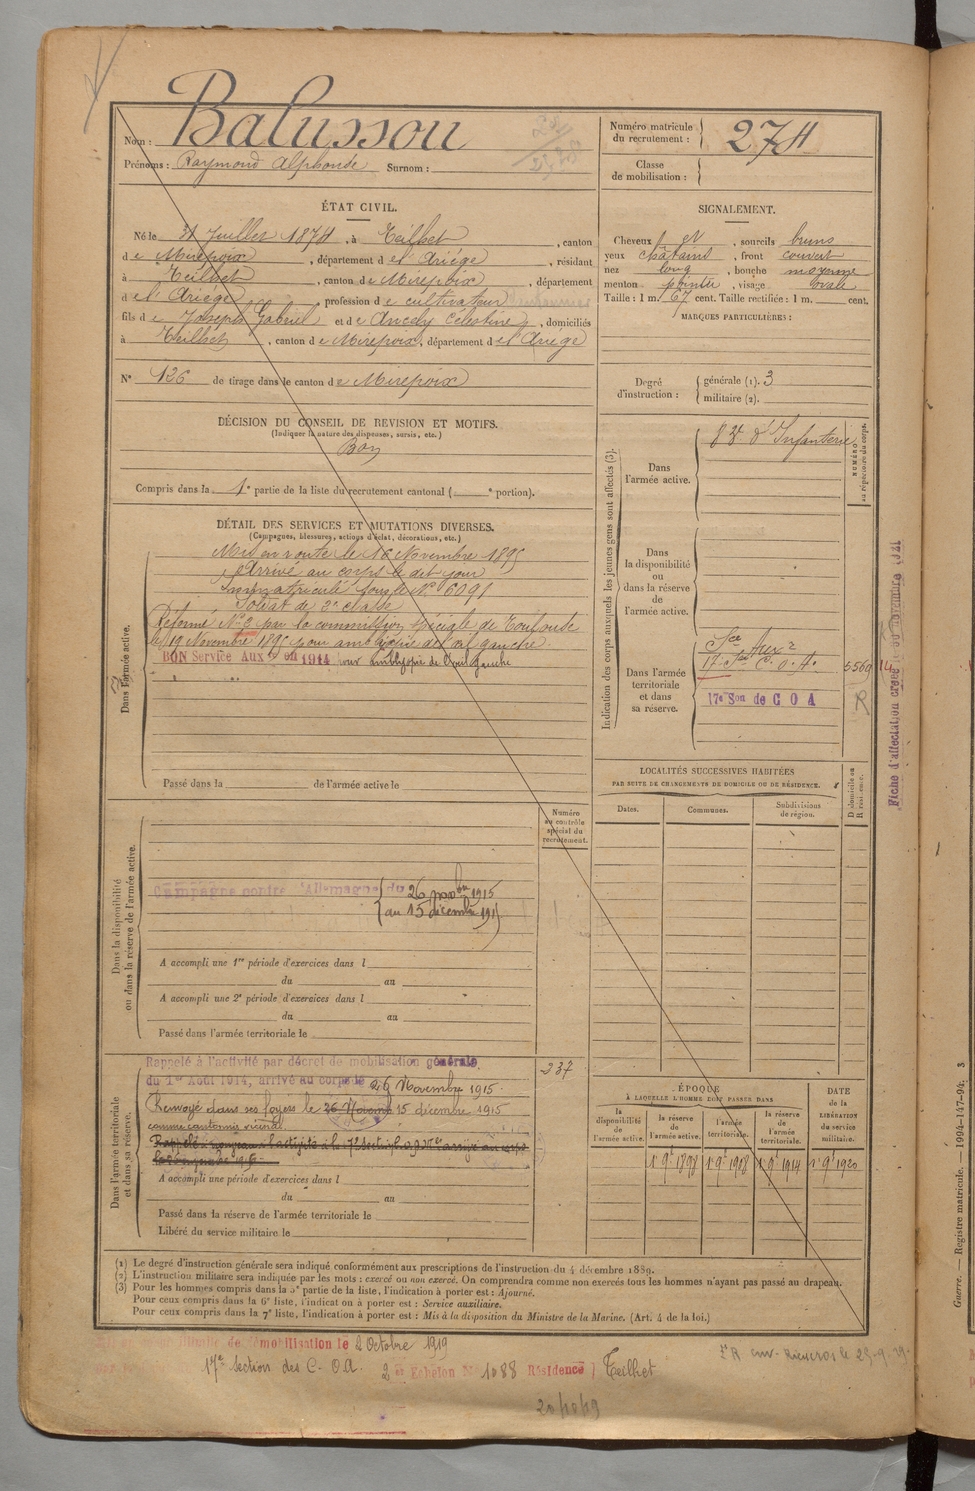 Nom : Balussou
Prénoms : Raymond Alphonse Surnom :
Numéro matricule du recrutement : 274
Classe de mobilisation :
ÉTAT CIVIL.
Né le 31 Juillet 1874, à Teilhet, canton
de Mirepoix, département de l'Ariège, résidant
à Teilhet, canton de Mirepoix, département
de l'Ariège profession de cultivateur
fils de Joseph Gabriel et de Ancely Célestine, domiciliés
à Teilhet, canton de Mirepoix, département de l'Ariège
N° 126 de tirage dans le canton de Mirepoix
SIGNALEMENT.
Cheveux et, sourcils bruns
yeux châtains, front couvert
nez long, bouche moyenne
menton pointu, visage ovale
Taille : 1 m. 67 cent. Taille rectifiée : 1 m. cent.
MARQUES PARTICULIÈRES :
Degré d'instruction : générale (1). 3
militaire (2).
DÉCISION DU CONSEIL DE REVISION ET MOTIFS.
(Indiquer la nature des dispenses, sursis, etc.)
Bon
Compris dans la 1e partie de la liste du recrutement cantonal ( e portion).
DÉTAIL DES SERVICES ET MUTATIONS DIVERSES.
(Campagnes, blessures, actions d'éclat, décorations, etc.)
Dans l'armée active.
Mis en route le 16 Novembre 1895
Arrivé au corps le dit jour
Immatriculé sous le N° 6091
Soldat de 2e classe
Réformé N° 2 par la commission spéciale de Toulouse
le 19 Novembre 1895 pour amblyopie de l'œil gauche.
BON Service Aux en 1914 pour amblyopie de l'œil gauche
Passé dans la de l'armée active le
Indication des corps auxquels les jeunes gens sont affectés (3).
NUMÉRO au répertoire du corps.
Dans l'armée active.
83e d'Infanterie
Dans la disponibilité ou dans la réserve de l'armée active.
Dans l'armée territoriale et dans sa réserve.
Sce Auxre
17e Son C. O. A. 5569
17e Son de C O A
R
Fiche d'affectation créée le 30 novembre 1921
LOCALITÉS SUCCESSIVES HABITÉES
PAR SUITE DE CHANGEMENTS DE DOMICILE OU DE RÉSIDENCE.
Dates. Communes. Subdivisions de région. D domicile ou R résidence.
Numéro au contrôle spécial du recrutement.
Dans la disponibilité ou dans la réserve de l'armée active.
Campagne contre l'Allemagne du 26 novbre 1915
au 15 décembre 1915
A accompli une 1re période d'exercices dans l
du au
A accompli une 2e période d'exercices dans l
du au
Passé dans l'armée territoriale le
Dans l'armée territoriale et dans sa réserve.
Rappelé à l'activité par décret de mobilisation générale 337
du 1er Août 1914, arrivé au corps le 26 Novembre 1915.
Renvoyé dans ses foyers le 26 Novemb 15 décembre 1915
comme cantonnier vicinal.
A accompli une période d'exercices dans l
du au
Passé dans la réserve de l'armée territoriale le
Libéré du service militaire le
ÉPOQUE
À LAQUELLE L'HOMME DOIT PASSER DANS
la disponibilité de l'armée active. la réserve de l'armée active. l'armée territoriale. la réserve de l'armée territoriale. DATE de la LIBÉRATION du service militaire.
1 9e 1898 1 9e 1908 1 9e 1914 1 9e 1920
(1) Le degré d'instruction générale sera indiqué conformément aux prescriptions de l'instruction du 4 décembre 1889.
(2) L'instruction militaire sera indiquée par les mots : exercé ou non exercé. On comprendra comme non exercés tous les hommes n'ayant pas passé au drapeau.
(3) Pour les hommes compris dans la 5e partie de la liste, l'indication à porter est : Ajourné.
Pour ceux compris dans la 6e liste, l'indication à porter est : Service auxiliaire.
Pour ceux compris dans la 7e liste, l'indication à porter est : Mis à la disposition du Ministre de la Marine. (Art. 4 de la loi.)
démobilisation le 2 Octobre 1919
17e section des C. O. A. 2 er Echelon N° 1088 Résidence Teilhet
20/10/19
Guerre. — Registre matricule. — 1994-147-94. 3